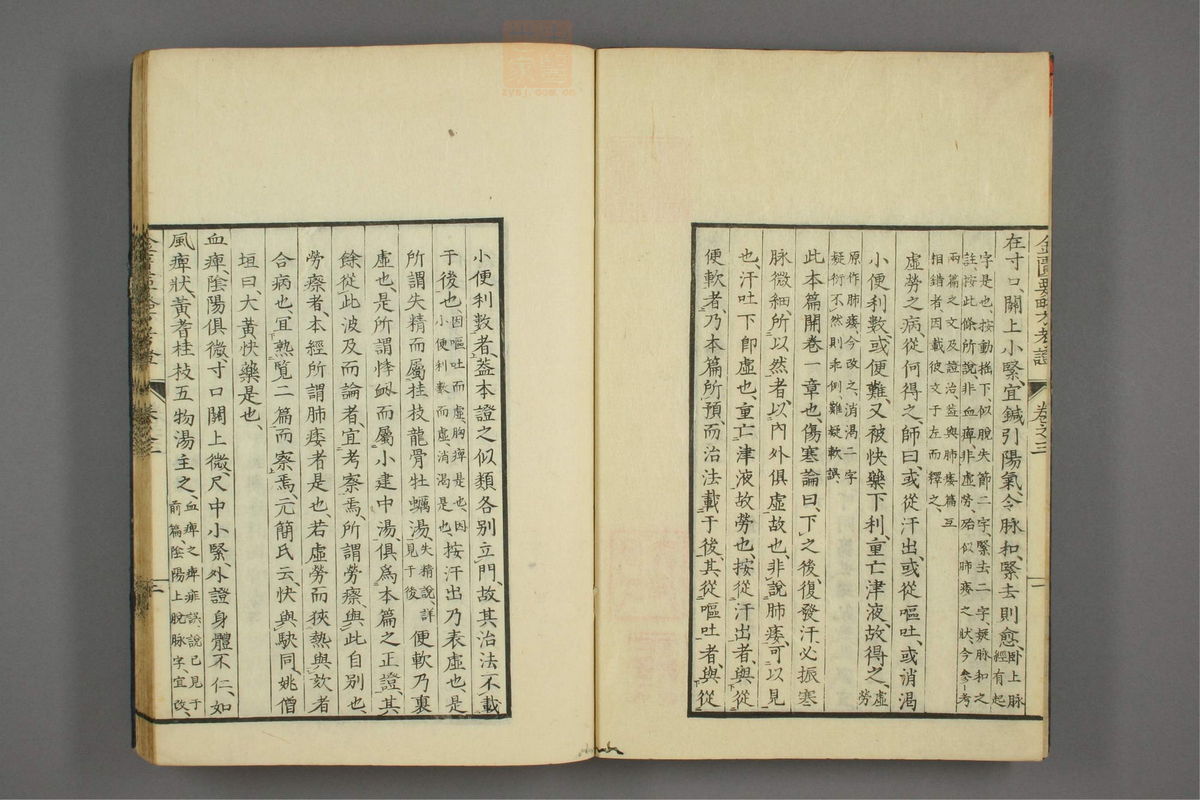 金匱要略方考證 卷之三
在寸口、關上小緊、宜鍼引陽氣、令脉和、緊去則愈、臥上脉經有起
字是也、按動搖下、似脫失節二字、緊去二字、疑脉和之
註、按此條所說非血痺、非虛勞、殆似肺痿之狀、今參考
兩篇之文及證治、蓋與肺痿篇互
相錯者、因載彼文于左而釋之、
虛勞之病、從何得之、師曰、或從汗出、或從嘔吐、或消渴
小便利數、或便難、又被快藥下利、重亡津液、故得之、虛勞
原作肺痿、今改之、消渴二字
疑衍、不然則乖例、難疑軟誤、
此本篇開卷一章也、傷寒論曰、下之後、復發汗、必振寒
脉微細、所以然者、以内外俱虛故也、非說肺痿、可以見
也、汗吐下卽虛也、重亡津液故勞也、按從汗出者、與從
便軟者、乃本篇所預、而治法載于後、其從嘔吐者、與從
小便利數者、蓋本證之似類各別立門、故其治法不載
于後也、因嘔吐而虛、胸痺是也、因小便利數而虛、消渴是也、按汗出乃表虛也、是
所謂失精而屬桂枝龍骨牡蠣湯、失精說詳見于後便軟乃裏
虛也、是所謂悸衂而屬小建中湯、俱爲本篇之正證、其
餘從此波及而論者、宜考察焉、所謂勞瘵、與此自別也、
勞瘵者、本經所謂肺痿者是也、若虛勞而狹熱與欬者
合病也、宜熟覽二篇而察焉、元簡氏云、快與駃同、姚僧
垣曰、大黃快藥是也、
血痺、陰陽俱微、寸口關上微、尺中小緊、外證身體不仁、如
風痺狀、黃耆桂枝五物湯主之、血痺之痺疿誤、說已見于前篇、陰陽上脫脉字、宜改、
卷之三